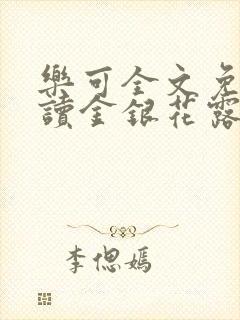 樂可全文免
讀金銀花露
李偲嫣